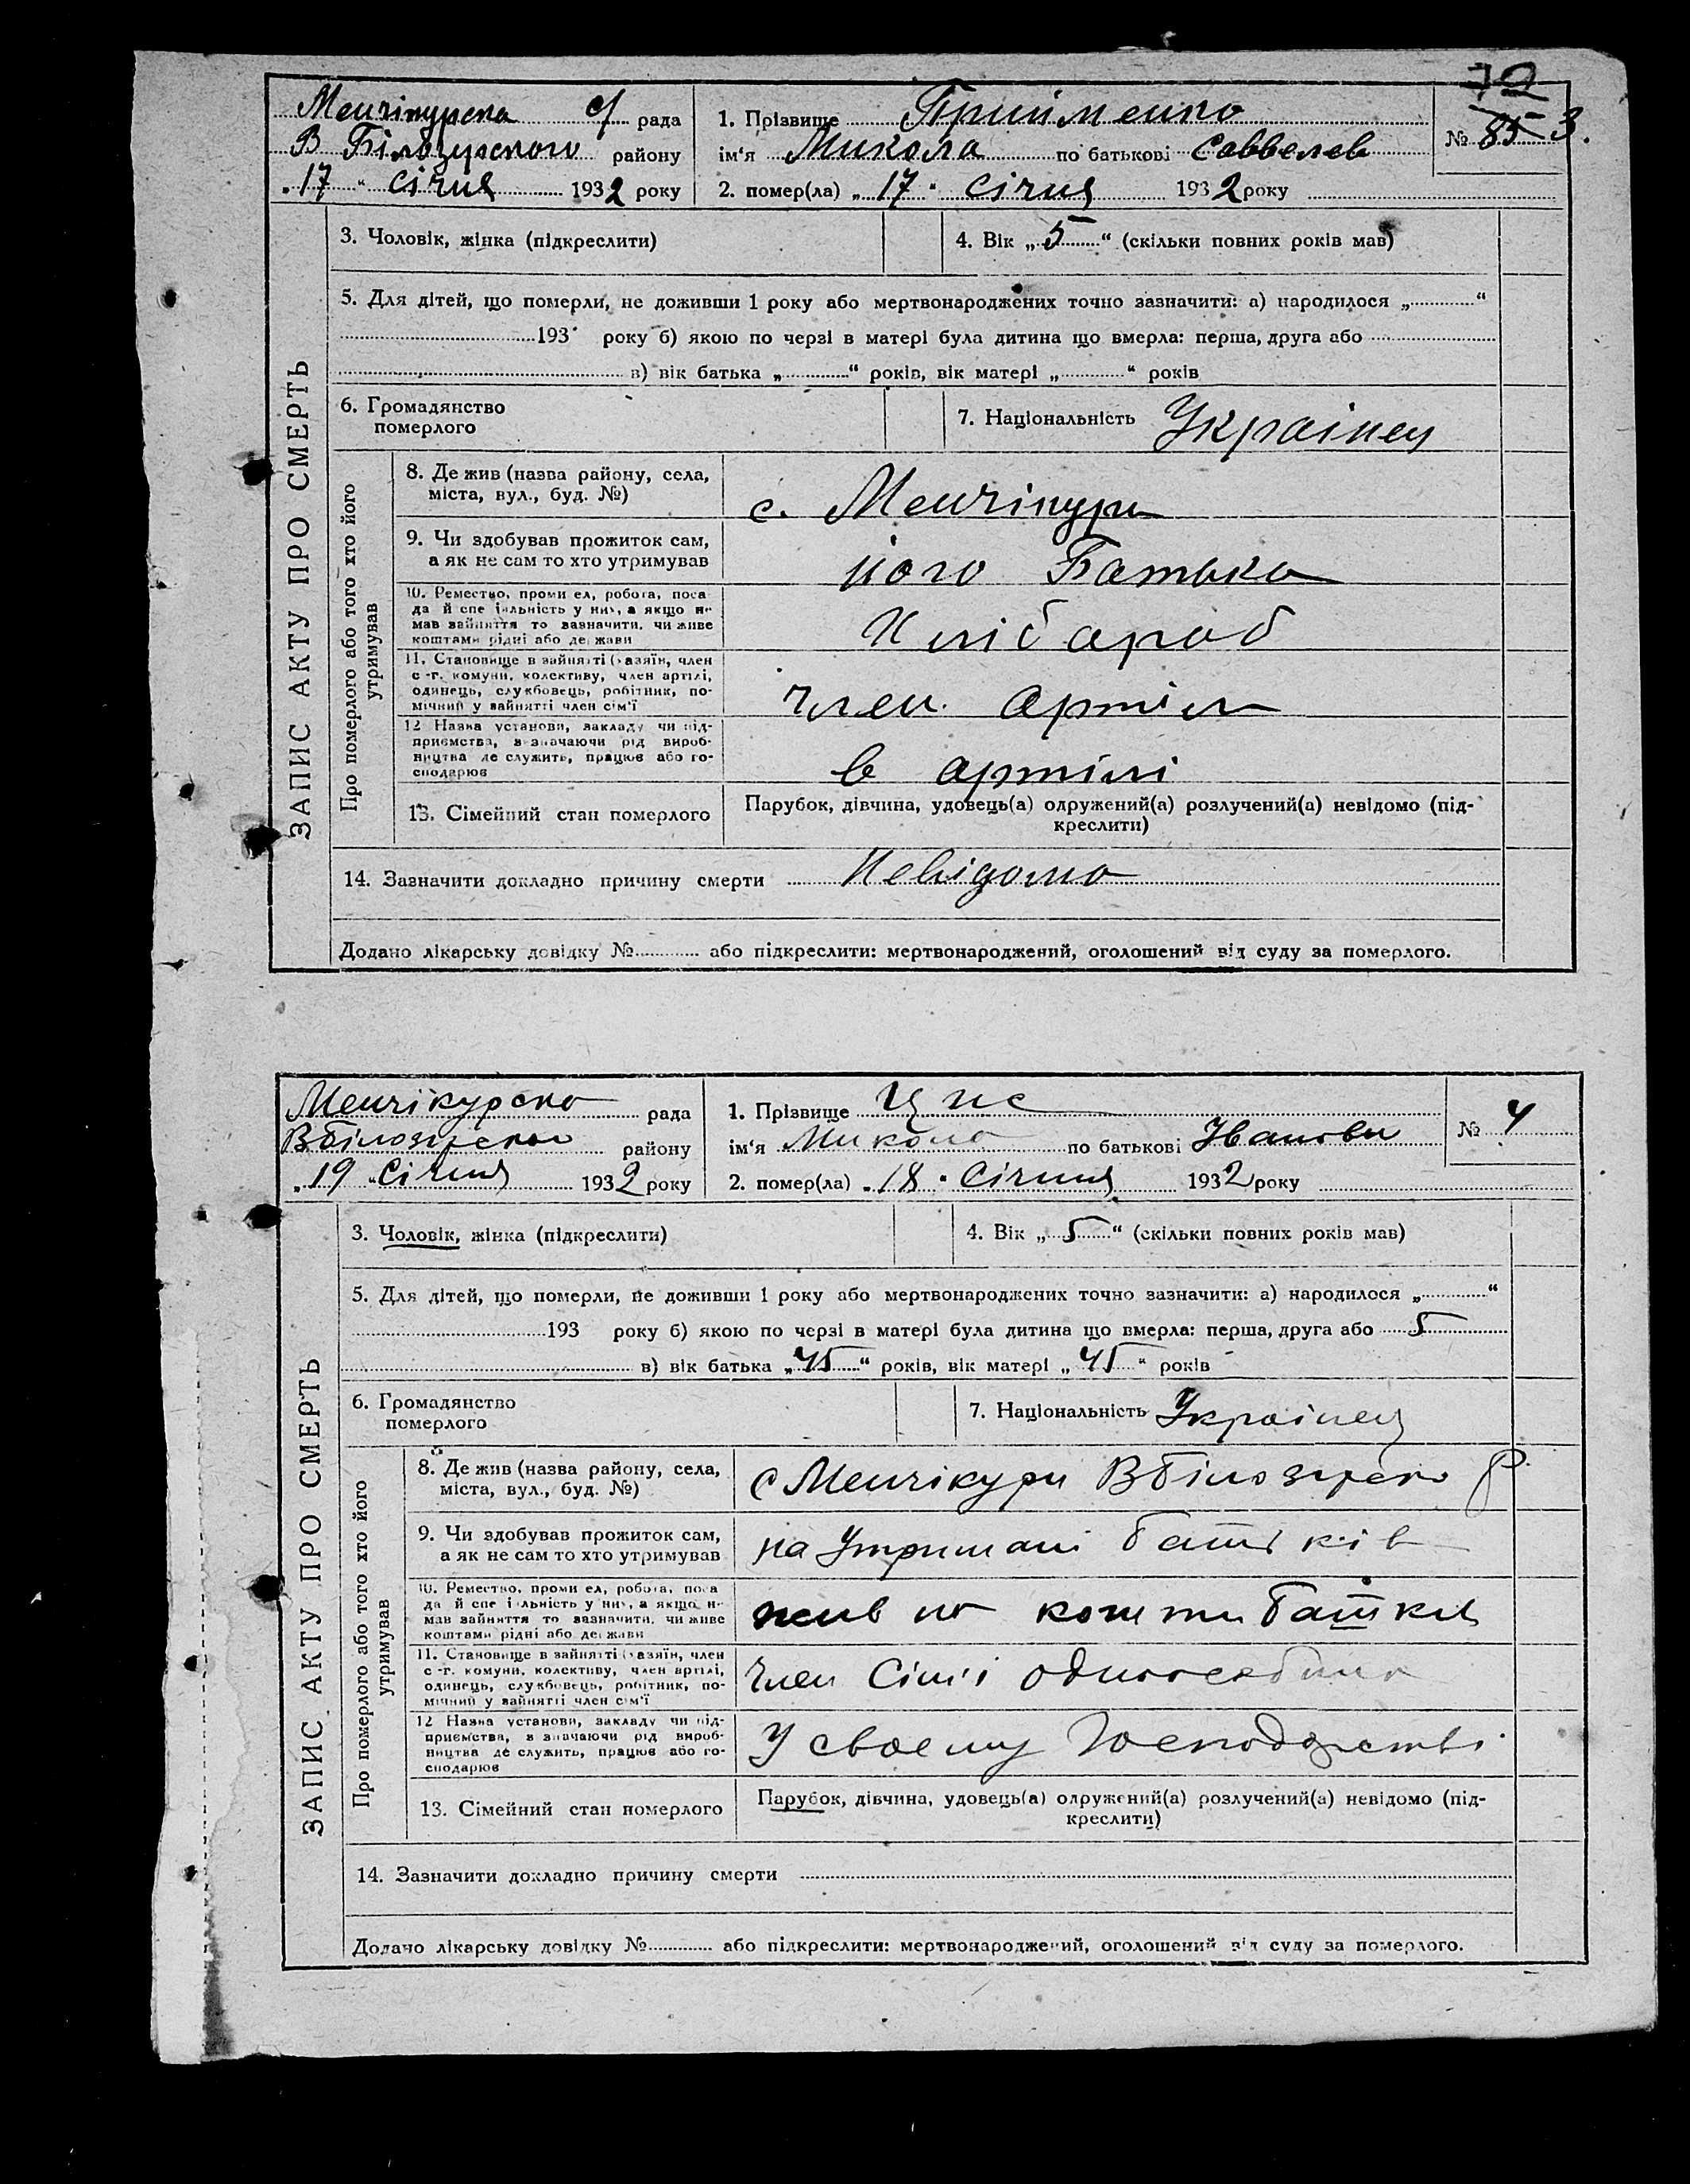 70
Менчікурска с/ рада
В Білозирського району
„17“ Січня 1932 року
1. Прізвище Прийменко
ім'я Микола по батькові Саввелев
2. помер(ла) „17“ Січня 1932 року
№ 85 3.
ЗАПИС АКТУ ПРО СМЕРТЬ
3. Чоловік, жінка (підкреслити)
4. Вік „5“ (скільки повних років мав)
5. Для дітей, що померли, не доживши 1 року або мертвонароджених точно зазначити: а) народилося „ “
193 року б) якою по черзі в матері була дитина що вмерла: перша, друга або
в) вік батька „ “ років, вік матері „ “ років
6. Громадянство
померлого
7. Національність Українец
Про померлого або того хто його
утримував
8. Де жив (назва району, села,
міста, вул., буд. №)
с. Менчікури
9. Чи здобував прожиток сам,
а як не сам то хто утримував
його Батько
10. Ремество, промисел, робота, поса
да й спеціяльність у них, а якщо не
мав зайняття то зазначити, чи живе
коштами рідні або держави
Хлібароб
11. Становище в зайнятті (хазяїн, член
с.-г. комуни, колективу, член артілі,
одинець, службовець, робітник, по-
мічний у зайнятті член сім'ї
член артіли
12 Назва установи, закладу чи під-
приємства, зазначаючи рід вироб-
ництва де служить, працює або го-
сподарює
в артілі
13. Сімейний стан померлого
Парубок, дівчина, удовець(а) одружений(а) розлучений(а) невідомо (під-
креслити)
14. Зазначити докладно причину смерти Невідомо
Додано лікарську довідку № або підкреслити: мертвонароджений, оголошений від суду за померлого.
Менчікурско рада
Вбілозирсков району
„19“ Січня 1932 року
1. Прізвище
ім'я Микола по батькові Іванови
2. помер(ла) „18“ Січня 1932 року
№ 4
ЗАПИС АКТУ ПРО СМЕРТЬ
3. Чоловік, жінка (підкреслити)
4. Вік „5“ (скільки повних років мав)
5. Для дітей, що померли, не доживши 1 року або мертвонароджених точно зазначити: а) народилося „ “
193 року б) якою по черзі в матері була дитина що вмерла: перша, друга або 5
в) вік батька „45“ років, вік матері „45“ років
6. Громадянство
померлого
7. Національність Українец
Про померлого або того хто його
утримував
8. Де жив (назва району, села,
міста, вул., буд. №)
с Менчікури Вбілозирско Р.
9. Чи здобував прожиток сам,
а як не сам то хто утримував
на Утримані батьків
10. Ремество, промисел, робота, поса
да й спеціяльність у них, а якщо не
мав зайняття то зазначити, чи живе
коштами рідні або держави
жив на кошти батків
11. Становище в зайнятті (хазяїн, член
с.-г. комуни, колективу, член артілі,
одинець, службовець, робітник, по-
мічний у зайнятті член сім'ї
член Сім'ї
12 Назва установи, закладу чи під-
приємства, зазначаючи рід вироб-
ництва де служить, працює або го-
сподарює
У своему Господарстві
13. Сімейний стан померлого
Парубок, дівчина, удовець(а) одружений(а) розлучений(а) невідомо (під-
креслити)
14. Зазначити докладно причину смерти
Додано лікарську довідку № або підкреслити: мертвонароджений, оголошений від суду за померлого.